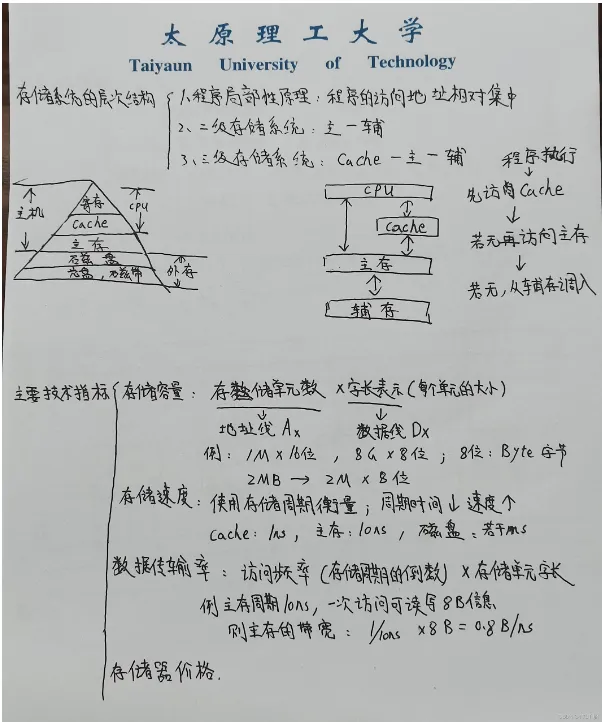 太原理工大学
Taiyaun University of Technology
存储系统的层次结构
1、程序局部性原理：程序的访问地址相对集中
2、二级存储系统：主一辅
3、三级存储系统：Cache一主一辅
程序执行
先访问Cache
若无再访问主存
若无，从辅存调入
主机
寄存
Cache
主存
磁盘
光盘，磁带
CPU
外存
CPU
cache
主存
辅存
主要技术指标
存储容量：存储单元数 × 字长表示(每个单元的大小)
地址线 Ax 数据线 Dx
例：1M×16位，8G×8位；8位：Byte 字节
2MB → 2M×8位
存储速度：使用存储周期衡量；周期时间↓速度↑
Cache：1ns，主存：10ns，磁盘：若干ms
数据传输率：访问频率(存储周期的倒数)×存储单元字长
例 主存周期10ns，一次访问可读写8B信息
则主存的带宽：1/10ns ×8B = 0.8B/ns
存储器价格.